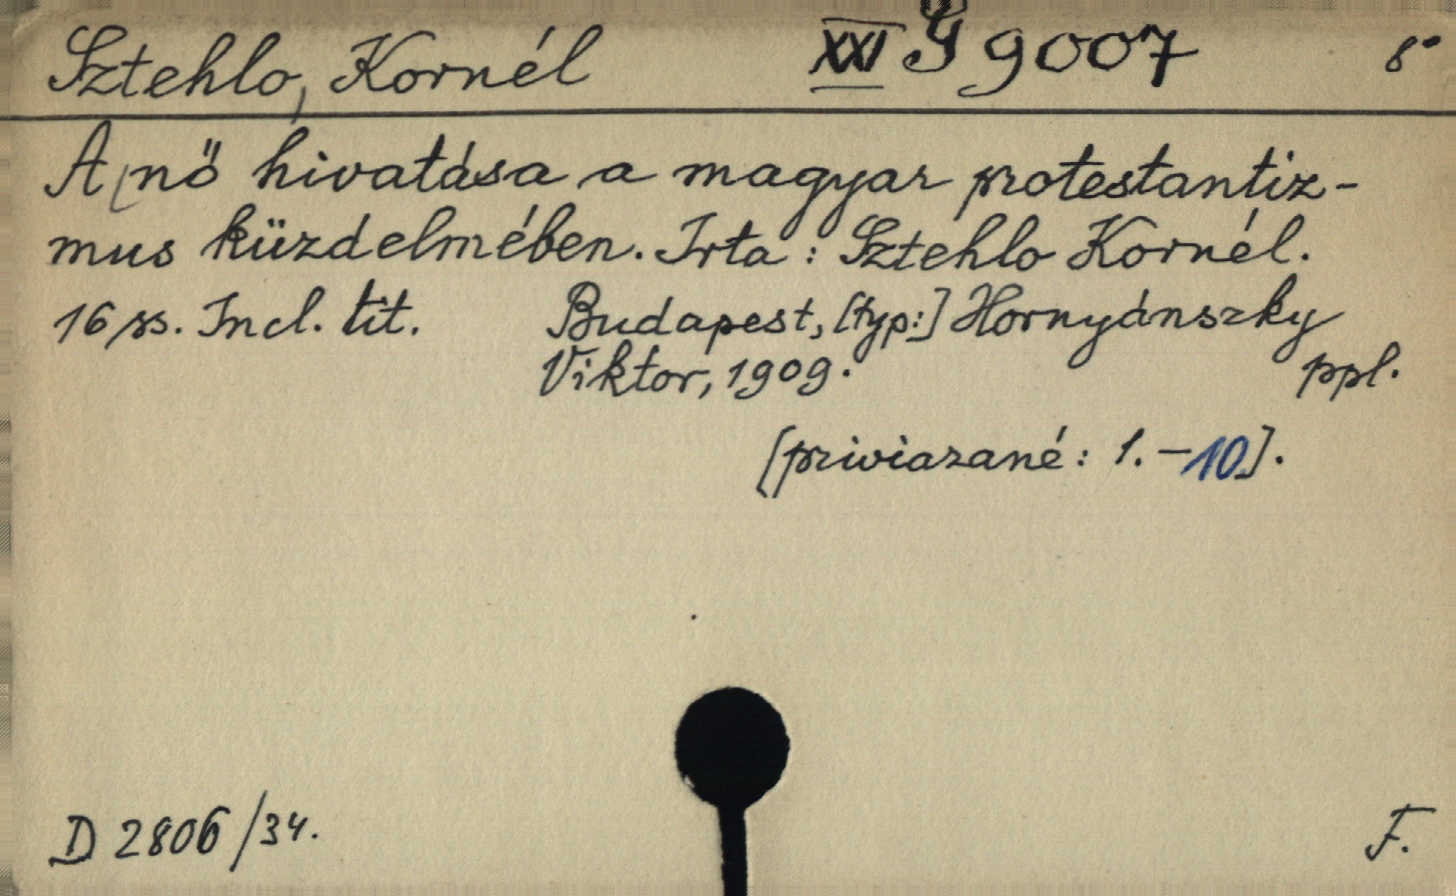 Sztehlo, Kornél XXI G 9007 8°
A nő hivatása a magyar protestantiz-
mus küzdelmében. Irta: Sztehlo Kornél.
16 ss. Incl. tit. Budapest, [typ:] Hornyánszky
Viktor, 1909. ppl.
[priviazané: 1.-10].
D 2806/34. F.